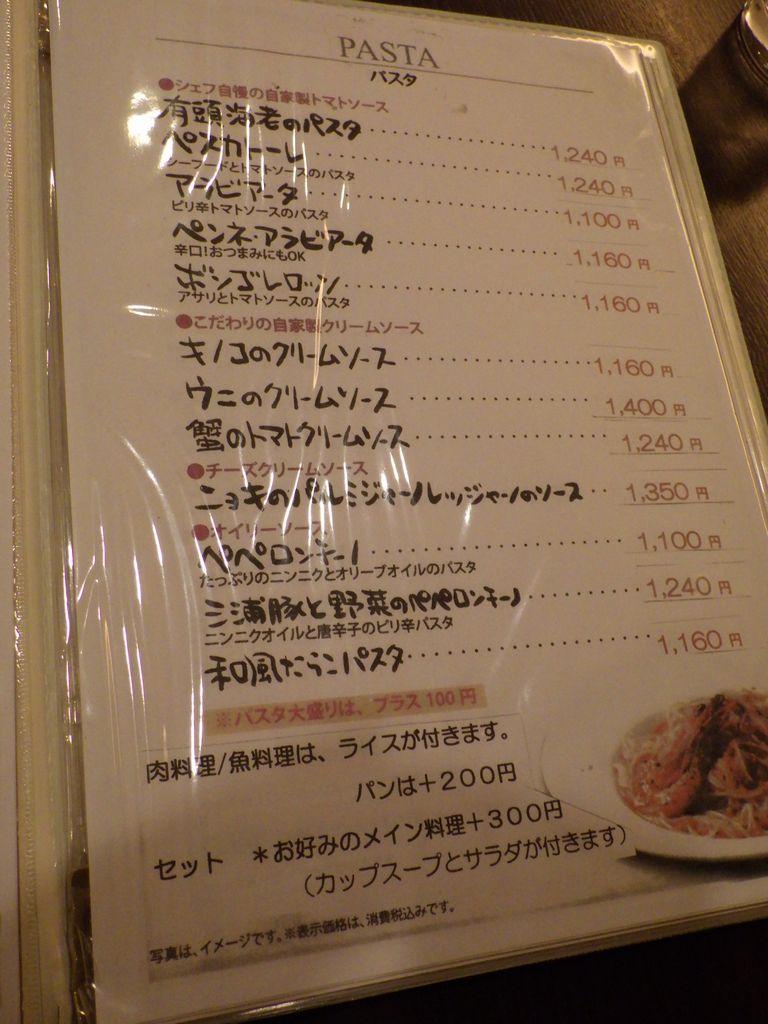 PASTA
パスタ
●シェフ自慢の自家製トマトソース
有頭海老のパスタ 1,240円
ペスカトーレ 1,240円
シーフードとトマトソースのパスタ
アラビアータ 1,100円
ピリ辛トマトソースのパスタ
ペンネ・アラビアータ 1,160円
辛口!おつまみにもOK
ボンゴレロッソ 1,160円
アサリとトマトソースのパスタ
●こだわりの自家製クリームソース
キノコのクリームソース 1,160円
ウニのクリームソース 1,400円
蟹のトマトクリームソース 1,240円
●チーズクリームソース
ニョキのパルミジャーノレッジャーノのソース 1,350円
●オイリーソース
ペペロンチーノ 1,100円
たっぷりのニンニクとオリーブオイルのパスタ
三浦豚と野菜のペペロンチーノ 1,240円
ニンニクオイルと唐辛子のピリ辛パスタ
和風たらこパスタ 1,160円
※パスタ大盛りは、プラス100円
肉料理/魚料理は、ライスが付きます。
パンは+200円
セット *お好みのメイン料理+300円
(カップスープとサラダが付きます)
写真は、イメージです。※表示価格は、消費税込みです。